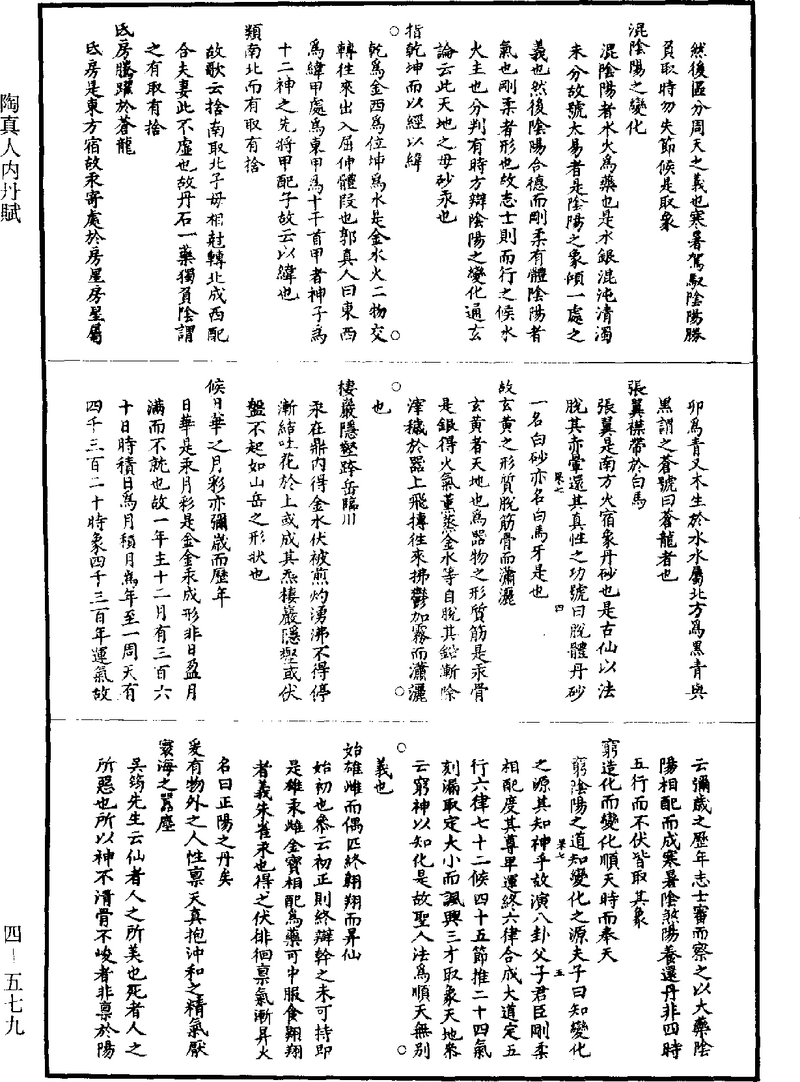 然後區分周天之義也寒暑駕馭陰陽勝
負取時勿失節候是取象
混陰陽之變化
混陰陽者水火為藥也是水銀混沌清濁
未分故號太易者是陰陽之象傾一處之
義也然後陰陽合德而剛柔有體陰陽者
氣也剛柔者形也故志士則而行之候水
火主也分判有時方辯陰陽之變化通玄
論云此天地之母砂汞也
指乾坤而以經以緯
乾為金西為位坤為水是金水火二物交
轉往來出入屈伸體段也郭真人曰東西
為緯甲處為東甲為十干首甲者神子為
十二神之先將甲配子故云以緯也
類南北而有取有捨
故歌云捨南取北子母相尅轉北成西配
合夫妻此不虛也故丹石一藥獨負陰謂
之有取有捨
氐房騰躍於蒼龍
氐房是東方宿故汞寄處於房星房星屬
卯為青又木生於水水屬北方為黑青與
黑謂之蒼號曰蒼龍者也
張翼襟帶於白馬
張翼是南方火宿象丹砂也是古仙以法
脫其赤暈還其真性之功號曰脫體丹砂
一名白砂亦名白馬牙是也
故玄黃之形質脫筋骨而瀟灑
玄黃者天地也為器物之形質筋是汞骨
是銀得火氣薰蒸金水等自脫其鉛漸除
滓穢於器上飛摶往來拂鬱加霧而瀟灑
也
棲巖隱壑跨岳臨川
汞在鼎內得金水伏被煎灼湧沸不得停
漸結吐花於上或成其炁棲巖隱壑或伏
盤不起如山岳之形狀也
候日華之月彩亦彌歲而歷年
日華是汞月彩是金金汞成形非日盈月
滿而不就也故一年主十二月有三百六
十日時積日為月積月為年至一周天有
四千三百二十時象四千三百年運氣故
云彌歲之歷年志士審而察之以大藥陰
陽相配而成寒暑陰煞陽養還丹非四時
五行而不伏皆取其象
窮造化而變化順天時而奉天
窮陰陽之道知變化之源夫子曰知變化
之源其知神乎故演八卦父子君臣剛柔
相配度其尊卑運終六律合成大道定五
行六律七十二候四十五節推二十四氣
刻漏取定大小而諷興三才取象天地亦
云窮神以知化是故聖人法為順天無別
義也
始雄雌而偶匹終翱翔而昇仙
始初也參云初正則終辯幹之未可持即
是雄汞雌金寶相配為藥可中服食翱翔
者義朱雀汞也得之伏徘徊稟氣漸昇火
名曰正陽之丹矣
爰有物外之人性稟天真抱沖和之精氣厭
寰海之囂塵
吳筠先生云仙者人之所美也死者人之
所惡也所以神不清骨不峻者非稟於陽
陶真人内丹賦
四－五七九